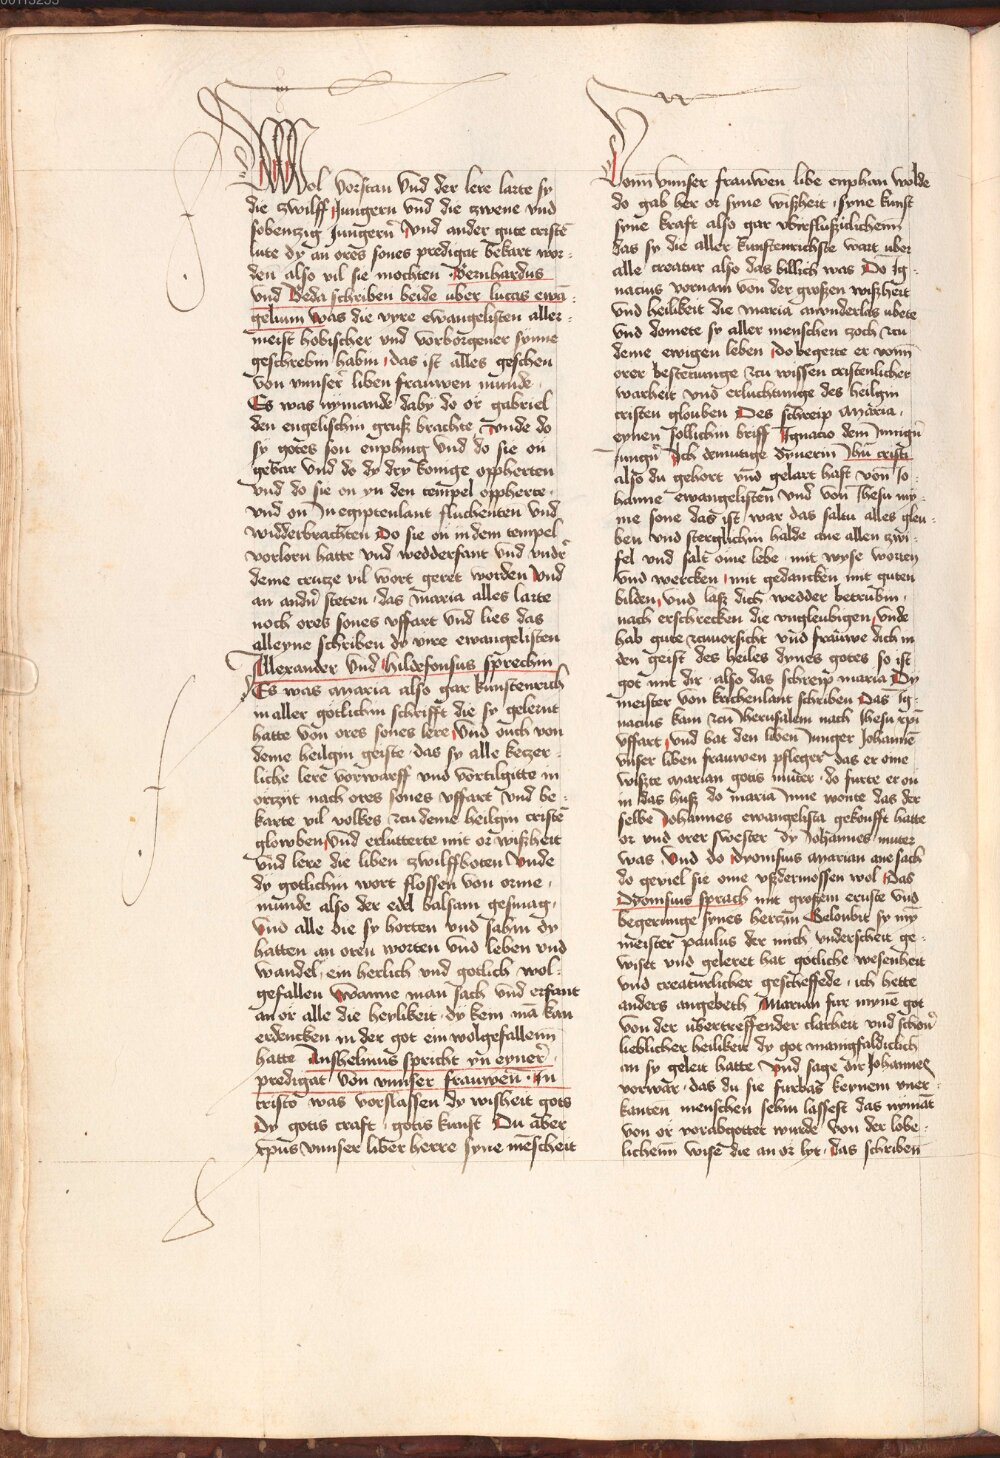 Wol vorstan vnd der lere larte sy
die zwilff Jungern vnd die zwene vnd
sobenzig Jungern̄ vnd ander gute cristē
lute dy an ores sones predigat bekart wor-
den also vil sie mochten Bernhardus
vnd Beda schriben beide uber lucas ewā-
gelium was die vyre ewangelisten aller-
meist hobischer vnd vorborgener synne
geschrebin habin das ist alles geschen
von vnnser liben frauwen munde
Es was nymande daby do or gabriel
den engelischin gruß brachte vnde do
sy gotes son enpfing vnd do sie on
gebar vnd do dy dry konige oppherten
vnd do sie on yn den tempel oppherte
vnd on In egiptenlant fluchenten vnd
widderbrachten Do sie on in dem tempel
vorlorn hatte vnd wedderfant vnd vndr̄
deme crutze vil wort geret worden vnd
an andn̄ steten das maria alles larte
noch ores sones vffart vnd lies das
alleyne schriben dy vire ewangelisten
Allexander vnd hildefonsus sprechin
Es was maria also gar kunstenrich
in aller gotlichin schrifft die sy gelernt
hatte von ores sones lere vnd ouch von
deme heilgin geiste das sy alle ketzer-
liche lere vorwarff vnd vortilgitte in
orczijt nach ores sones vffart vnd be-
karte vil volkes zcu deme heilgin cristē
glowben vnd erlutterte mit or wißheit
vnd lere die liben zwilffboten vnde
dy gotlichin wort flossen von orme
munde also der edel balsam gesmag
vnd alle die sy horten vnd sahin dy
hatten an oren worten vnd leben vnd
wandel ein herlich vnd gotlich wol-
gefallen wanne man sach vnd erfant
an or alle die heylikeit dy kein mā kan
erdencken in der got ein wolgefallenn
hatte Anshelmus spricht yn eyner
predigat von vnnser frauwen In
cristo was vorslassen dy wisheit gots
dy gotis craft gotis kunst Du aber
xpūs vnnser liber herre syne mēscheit
Vonn vnnser frauwen libe enphan wolde
do gab her or syne wißheit syne kunst
syne kraft also gar vbirflußiclichenn
das sy die aller kunstenrichste wart uber
alle creatur also das billich was Do Ig-
nacius vornam von der großen wißheit
vnd heilikeit die maria anwnderlas ubete
vnd domete sy aller menschen zcoch zcu
deme ewigen leben do begerte er vonn
orer bestetunge zcu wissen cristenlicher
warheit vnd erluchtunge des heilgin
cristen glouben Des schreip maria
eynen sollichin briff Ignacio dem Jungn̄
Jungn̄ Ich demutige dynerin Jhū cristi
also du gehort vnd gelart hast von Jo-
hanne ewangelisten vnd von Jhesu my-
me sone das ist war das saltu alles glou-
ben vnd sterglichin halde ane allen zwi-
fel vnd salt ome lebe mit wyse worten
vnd wercken mit gedancken mit guten
bilden vnd laß dich wedder betrubin
nach erschrecken die vngleubigen vnde
hab gute zcuuorsicht vnd frauwe dich in
den geist des heiles dynes gotes so ist
got mit dir also das schreip maria Dy
meister von krichenlant schriben Das Ig-
nacius kam zcu Jherusalem nach Jhesu xpī
vffart vnd bat den liben Junger Johannē
vnser liben frauwen pfleger das er ome
wißte marian gotis muter do furte er on
in das huß do maria Inne wonte das der
selbe Johannes ewangelista gekoufft hatte
or vnd orer swester dy Johannes muter
was vnd do dyonisius marian ane sach
do geviel sie ome vßdermossen wol Das
Dyonisius sprach mit großem ernste vnd
begerunge synes herczin Geloubit sy my
meister paulus der mich vnderscheit ge-
wiset vnd geleret hat gotliche wesenheit
vnd creaturlicher gescheffede ich hette
anders angebeth Marian fur mynē got
von der ubertreffender clarheit vnd schonr̄
lieblicher heilikeit dy got manigfaldiclich
an sy geleit hatte vnd sage dir Johannes
vorwar das du sie furbas keynem vner-
kanten menschen sehin lassest das nymāt
von or vorabgottet wurde von der lobe-
lichenn wise die an or lyt das schriben